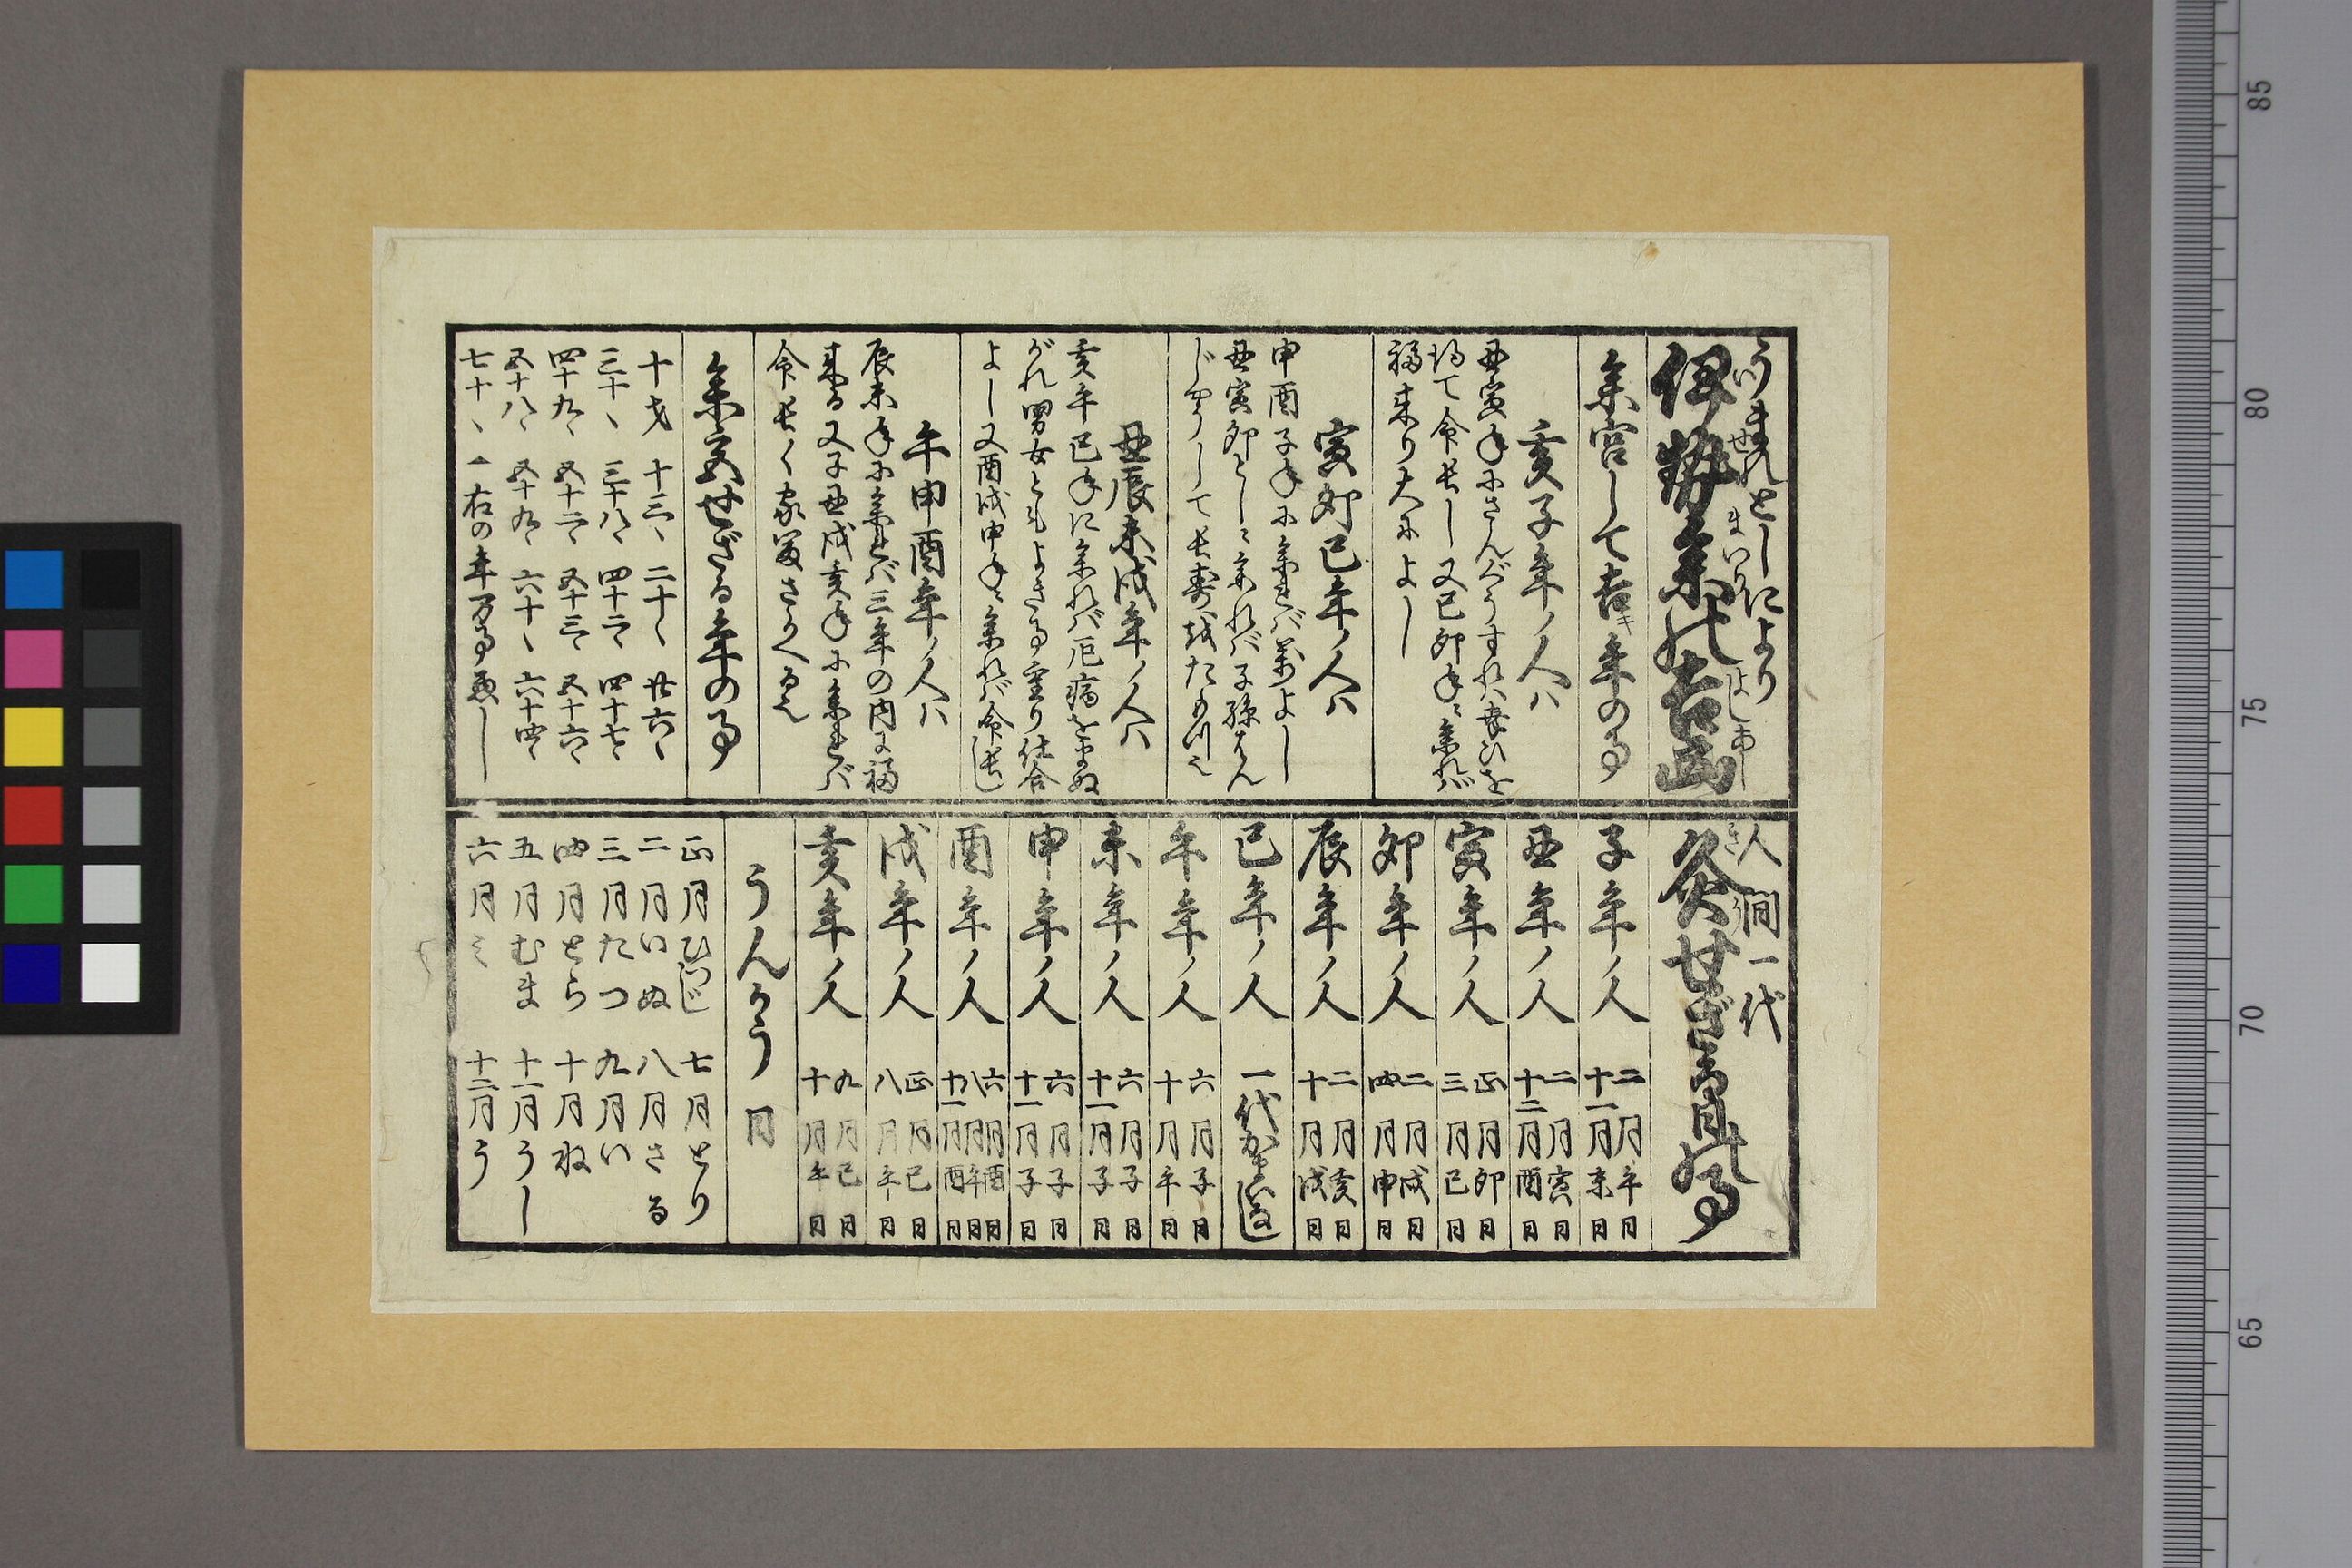 うまれどしにより
伊勢参の吉凶
参宮して吉キ年の事
亥子年ノ人ハ
丑寅年にさんぐうすれバ幸ひを
得て命長し又巳卯年ニ参れバ
福来り大によし
寅卯巳年ノ人ハ
申酉子年に参れバ萬よし
丑寅卯としニ参れバ子孫はん
じやうして長寿をたもつ也
丑辰未戌年ノ人ハ
亥午巳年に参れバ厄病をまぬ
がれ男女ともよき事重り仕合
よし又酉戌申年ニ参れバ命長し
午申酉年ノ人ハ
辰未年に参れバ三年の内に福
来る又子丑戌亥年に参れバ
命長く家富さかへる也
参宮せざる年の事
十才 十三〻 二十〻 廿六〻
三十〻 三十八〻 四十二〻 四十七〻
四十九〻 五十二〻 五十三〻 五十六〻
五十八〻 五十九〻 六十〻 六十四〻
七十〻 右の年万事悪し
人間一代
灸せざる日の事
子年ノ人 二月午日 十一月未日
丑年ノ人 二月寅日 十二月酉日
寅年ノ人 正月卯日 三月巳日
卯年ノ人 二月戌日 四月申日
辰年ノ人 二月亥日 十月戌日
巳年ノ人 一代かまいなし
午年ノ人 六月子日 十月午日
未年ノ人 六月子日 十一月子日
申年ノ人 六月子日 十一月子日
酉年ノ人 六月酉日 八月午日 十一月酉日
戌年ノ人 正月巳日 八月午日
亥年ノ人 九月巳日 十月午日
うんかう日
正月ひつじ 七月とり
二月いぬ 八月さる
三月たつ 九月い
四月とら 十月ね
五月むま 十一月うし
六月ミ 十二月う
85
80
75
70
65